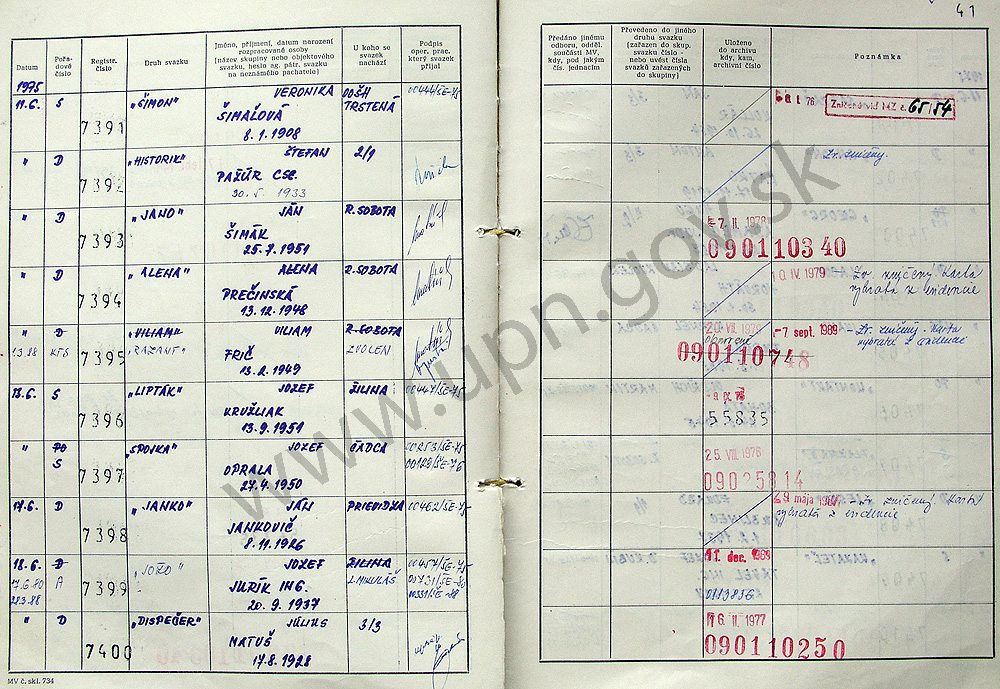 41
Datum
Pořadové číslo
Registr. číslo
Druh svazku
Jméno, příjmení, datum narození rozpracované osoby
(název skupiny nebo objektového svazku, heslo ag. pátr. svazku na neznámého pachatele)
U koho se svazek nachází
Podpis oper. prac. který svazek přijal
Předáno jinému odboru, odděl. součásti MV, kdy, pod jakým čís. jednacím
Převedeno do jiného druhu svazku (zařazen do skup. svazku číslo - nebo uvést čísla svazků zařazených do skupiny)
Uloženo do archivu kdy, kam, archivní číslo
Poznámka
1975
11.6. S 7391 „ŠIMON" VERONIKA OOŠH 00444/ŠE-75
ŠIMAĽOVÁ TRSTENÁ
8.1.1908
76
Zničené viď MZ č. 65/54
" D 7392 „HISTORIK" ŠTEFAN 2/1
PAŽÚR CSC.
30. 5. 1933
Zv. zničený.
" D 7393 „JANO" JÁN R. SOBOTA
ŠIMÁK
25.7.1951
-7. II. 1978
090110340
" D 7394 „ALENA" ALENA R. SOBOTA
PREČINSKÁ
13.12.1948
10. IV. 1979 - Zv. zničený Karta
vybratá z evidencie
" D 7395 „VILIAM" VILIAM R. SOBOTA
KTS „RAZANT" ZVOLEN
FRIČ
13.2.1949
-7. sept. 1989 - Zv. zničený. Karta
vybratá z evidencie
0901107448
13.6. S 7396 „LIPTÁK" JOZEF ŽILINA 00447/ŠE-75
KRUŽLIAK
13.9.1951
55835
" PO 7397 „SPOJKA" JOZEF ČADCA 00253/ŠE-75
S 00129/ŠE-76
OPRALA
27.4.1950
25. VIII. 1976
09025814
17.6. D 7398 „JANKO" JÁN PRIEVIDZA 00462/ŠE-75
JANKOVIČ
8.11.1926
29. mája - Zv. zničený Karta
vybratá z evidencie
18.6. D 7399 „JOŽO" JOZEF ŽILINA 00457/ŠE-75
17.6.80 A L. MIKULÁŠ 00731/ŠE-80
28.3.88 JURÍK ING. 00331/ŠE-88
20.9.1937
11. dec. 1989
" D 7400 „DISPEČER" JÚLIUS 3/3
MATUŠ
17.8.1928
16. II. 1977
090110250
MV č. skl. 734
www.upn.gov.sk